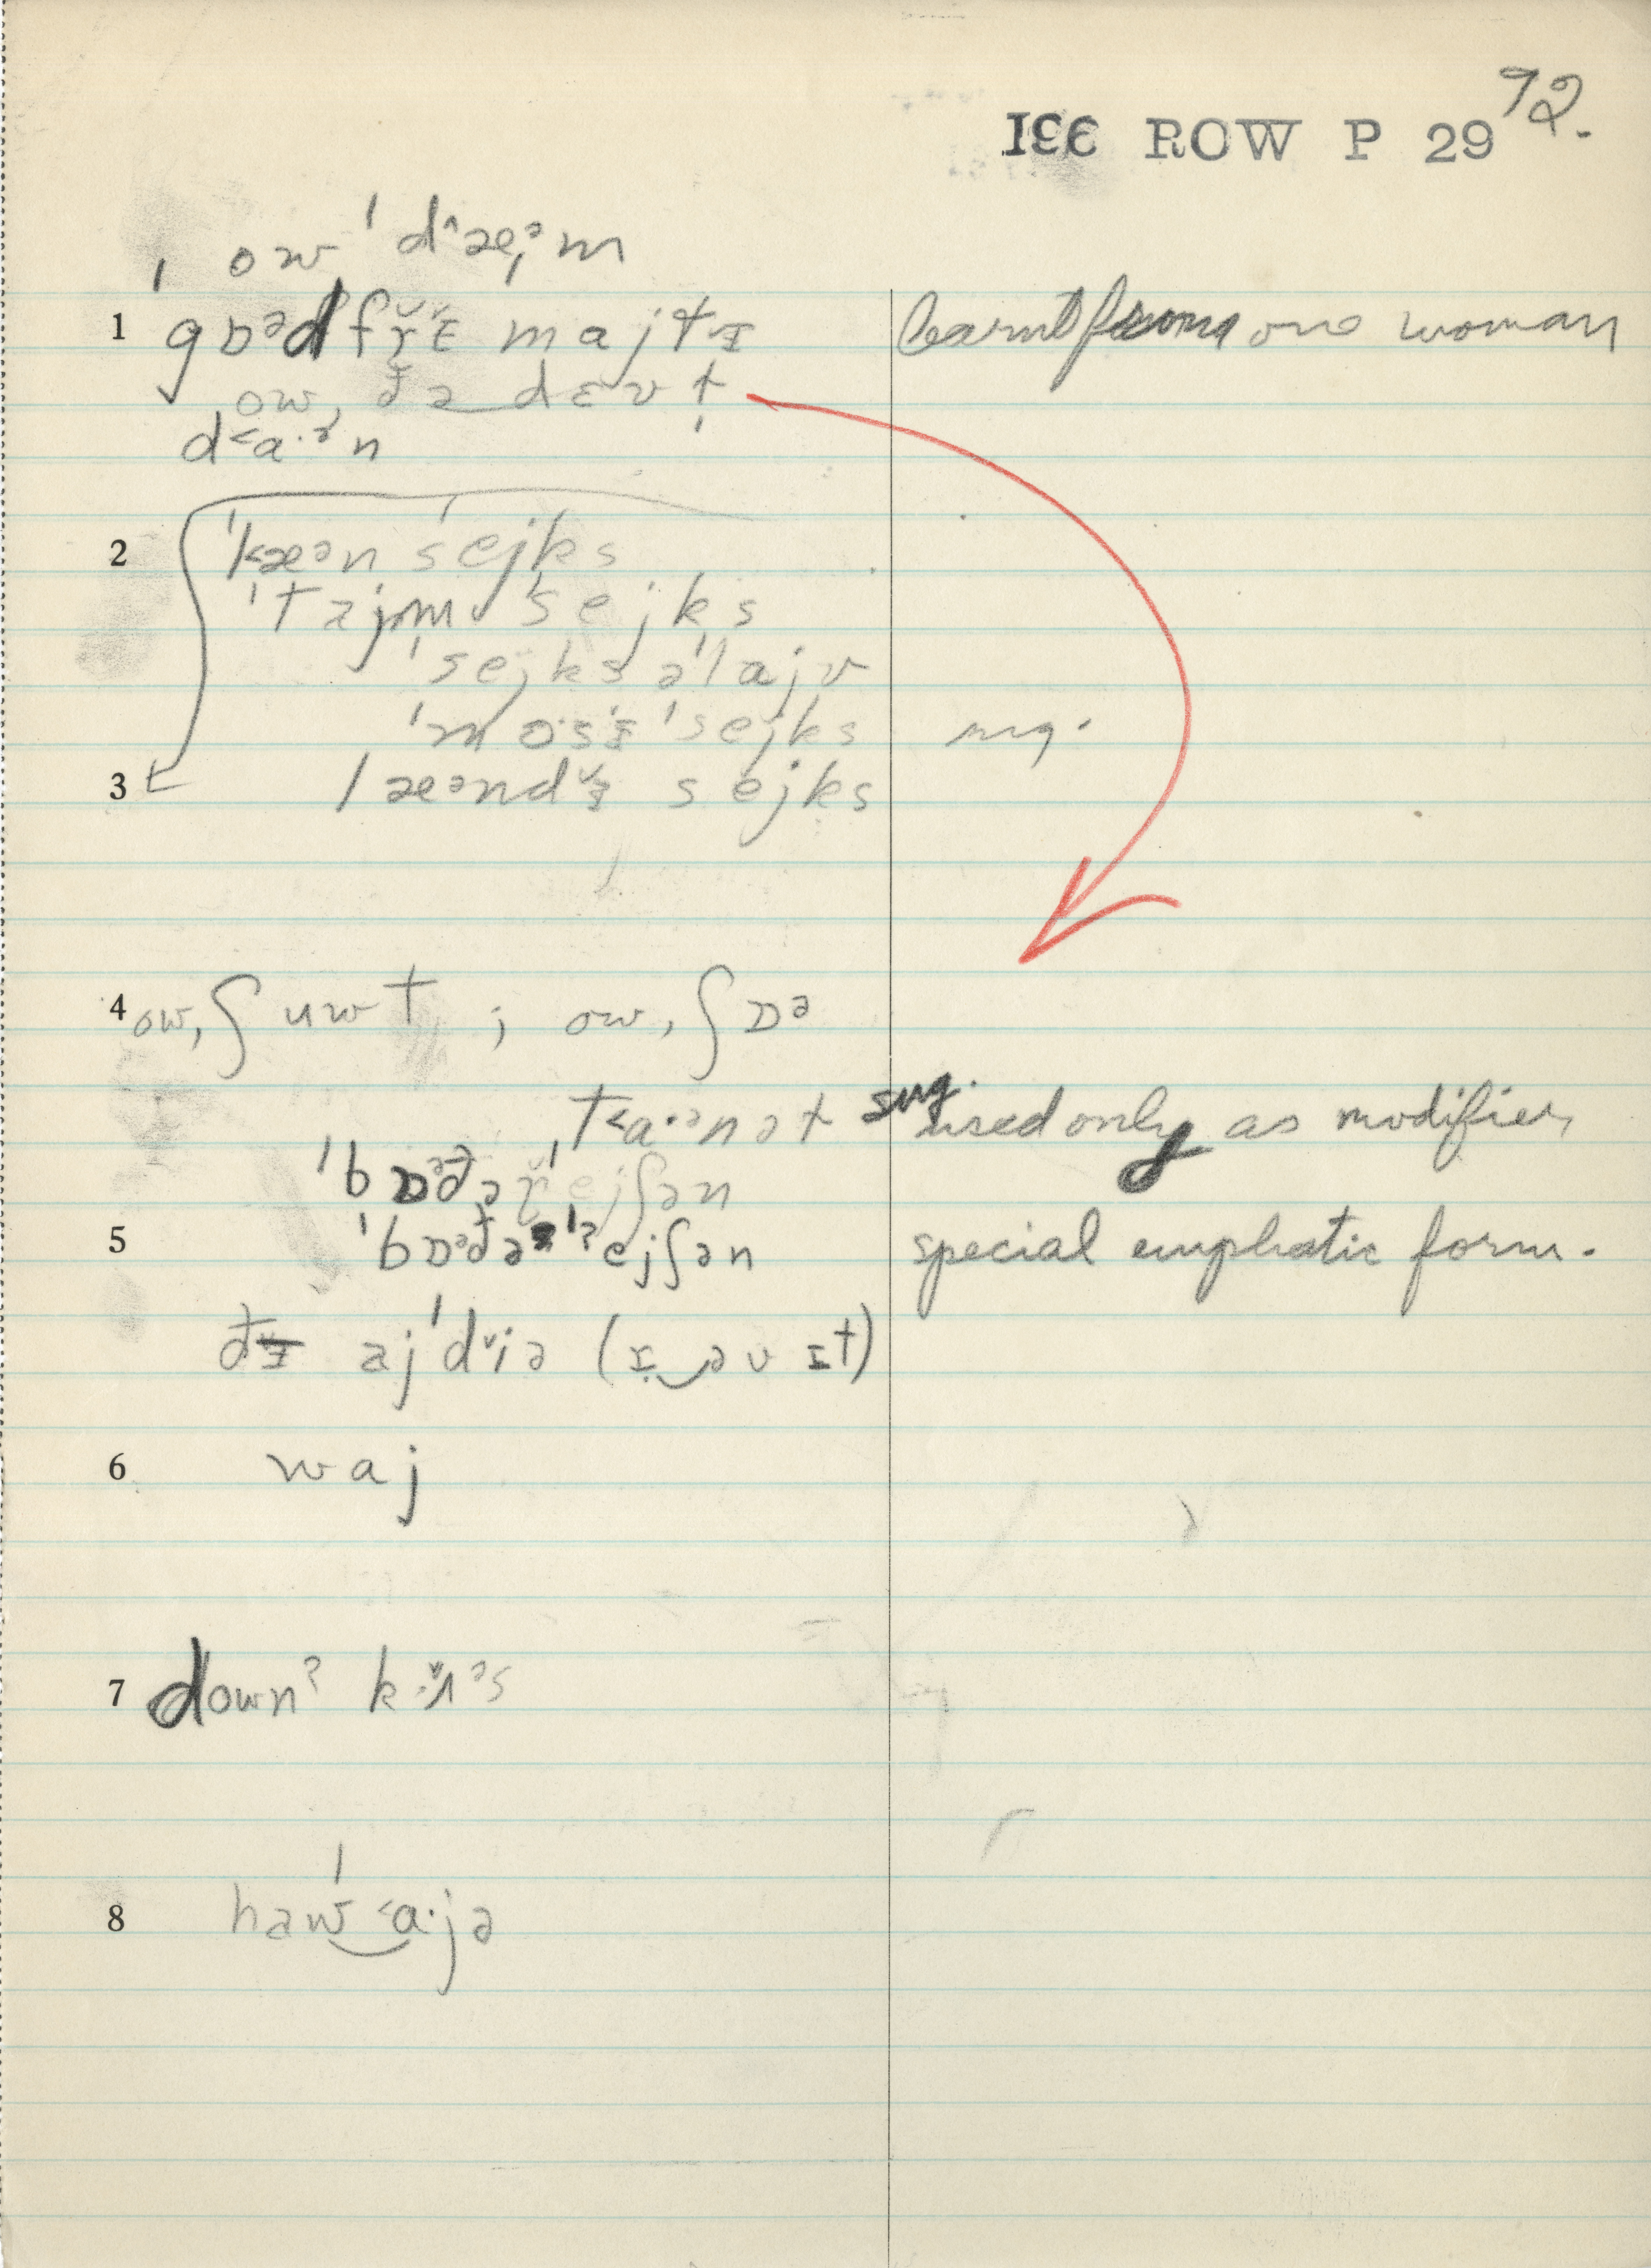 72.
IƐƐ ROW P 29
ow ˈd^æᵊm
1 ˈgɒᵊdfr̆ɛ majtɪ learnt from one woman
ow, đə dɛvt
d˂a·ᵊn
2 ˈk˂æᵊn ˈsejks
ˈtajm ˈsejks
ˈsejks əˈlajv
ˈmɔ·sɪ ˈsejks sug.
3 læᵊndˇɪ sejks
4 ow, ʃuwt ; ow, ʃɒᵊ
ˌt˂a·ᵊnət sug. used only as modifier
ˈbɒᵊđəˈr̆ejʃən
5 ˈbɒᵊđəˈʔejʃən special emphatic form.
đɪ ajˈdˇiə (ɪ əv ɪt)
6 waj
7 downʔ k ᵊs
8 hawˈ˂a·jə